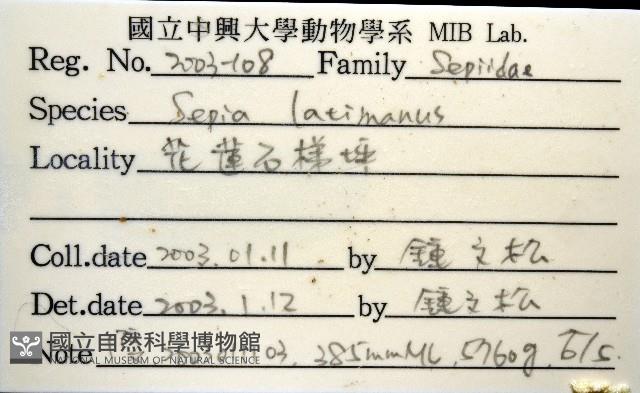 國立中興大學動物學系 MIB Lab.
Reg. No. 2003-108 Family Sepiidae
Species Sepia latimanus
Locality 花蓮石梯坪
Coll.date 2003.01.11 by 鍾文松
Det.date 2003.1.12 by 鍾文松
Note 03, 385mmML, 5760g,
國立自然科學博物館
NATIONAL MUSEUM OF NATURAL SCIENCE